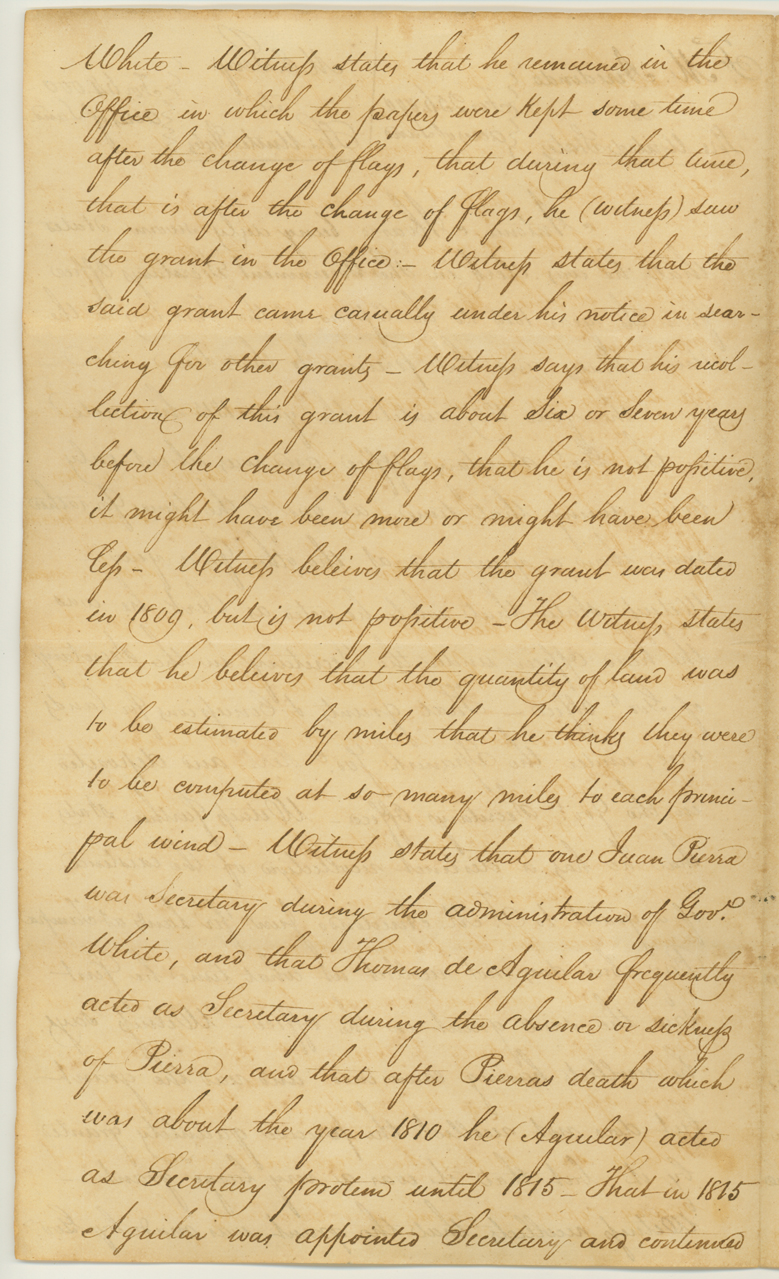 White – Witness states that he remained in the
Office in which the papers were Kept some time
after the change of flags, that during that time,
that is after the change of flags, he (witness) saw
the grant in the Office:– Witness states that the
said grant came casually under his notice in sear–
ching for other grants – Witness says that his recol–
lection of this grant is about Six or Seven years
before the change of flags, that he is not possitive,
it might have been more or might have been
less – Witness beleives that the grant was dated
in 1809, but is not possitive – The Witness states
that he beleives that the quantity of land was
to be estimated by miles that he thinks they were
to be computed at so many miles to each princi–
pal wind – Witness states that one Juan Pierra
was Secretary during the administration of Govr.
White, and that Thomas de Aguilar frequently
acted as Secretary during the absence or sickness
of Pierra, and that after Pierras death which
was about the year 1810 he (Aguilar) acted
as Secretary protem until 1815 – That in 1815
Aguilar was appointed Secretary and continued